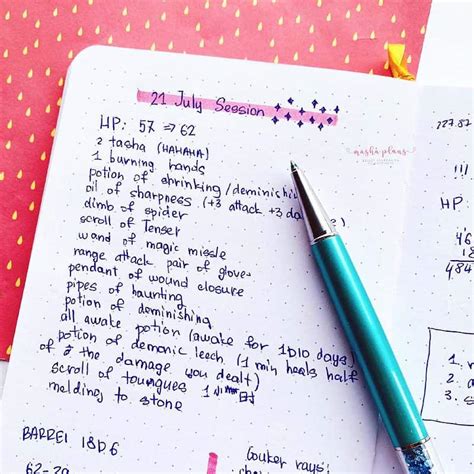 21 July Session
HP: 57 ⇒ 62
2 tasha (HAHAHA)
1 burning hands
potion of shrinking/deminishi
oil of sharpness (+3 attack +3 da
dimb of spider
scroll of Tenser
wand of magic missle
range attack pair of glove
pendant of wound closure
pipes of haunting
potion of deminishing
all awake potion (awake for 1D10 days)
potion of demonic leech (1 min heals half
of the damage you dealt)
scroll of toungues 1
melding to stone
BARREL 18D6
62-29
Gouker rays:
masha plans
227.87
!!!
HP:
46
18
484
1.
2.